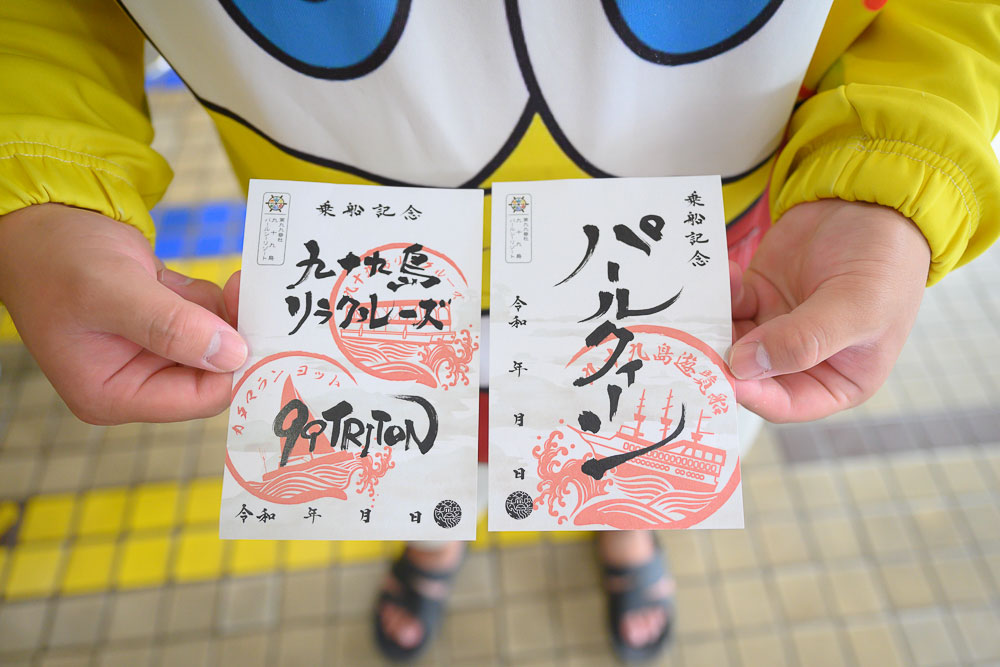 乗船記念
九十九島
リラクルーズ
カタマランヨット
99TRITON
令和 年 月 日
乗船記念
パールクィーン
九十九島遊覧船
令和 年 月 日